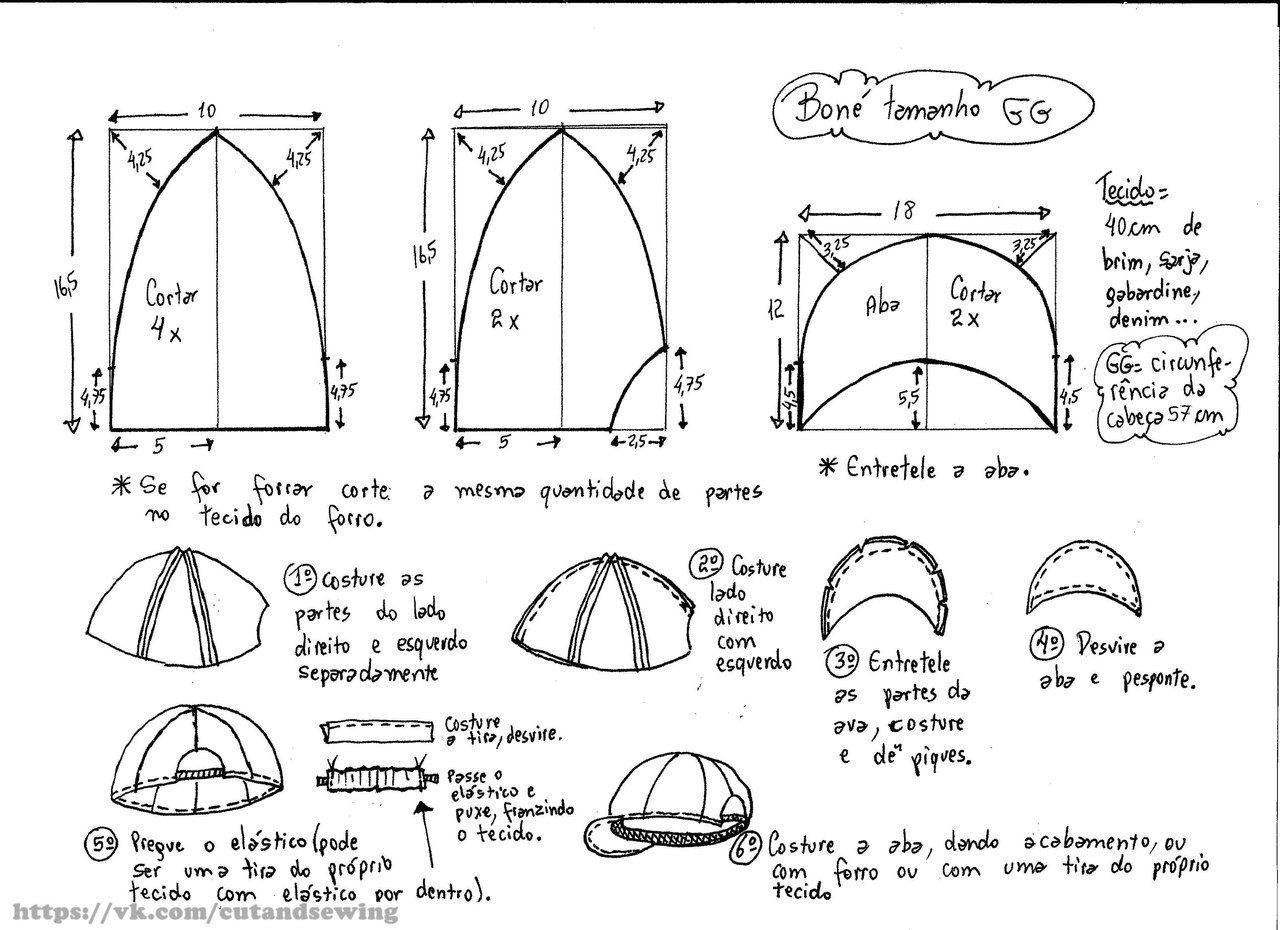 Boné tamanho GG
10
4,25
4,25
16,5
Cortar
4x
4,75
4,75
5
10
4,25
4,25
16,5
Cortar
2x
4,75
4,75
5
2,5
18
3,25
3,25
12
Aba
Cortar
2x
4,5
5,5
4,5
Tecido=
40cm de
brim, sarja,
gabardine,
denim...
GG= circunfe-
rência da
cabeça 57cm
* Entretele a aba.
* Se for forrar corte a mesma quantidade de partes
no tecido do forro.
1º Costure as
partes do lado
direito e esquerdo
separadamente
2º Costure
lado
direito
com
esquerdo
3º Entretele
as partes da
ava, costure
e dê piques.
4º Desvire a
aba e pesponte.
Costure
a tira, desvire.
Passe o
elástico e
puxe, franzindo
o tecido.
5º Pregue o elástico (pode
ser uma tira do próprio
tecido com elástico por dentro).
6º Costure a aba, dando acabamento, ou
com forro ou com uma tira do próprio
tecido
https://vk.com/cutandsewing